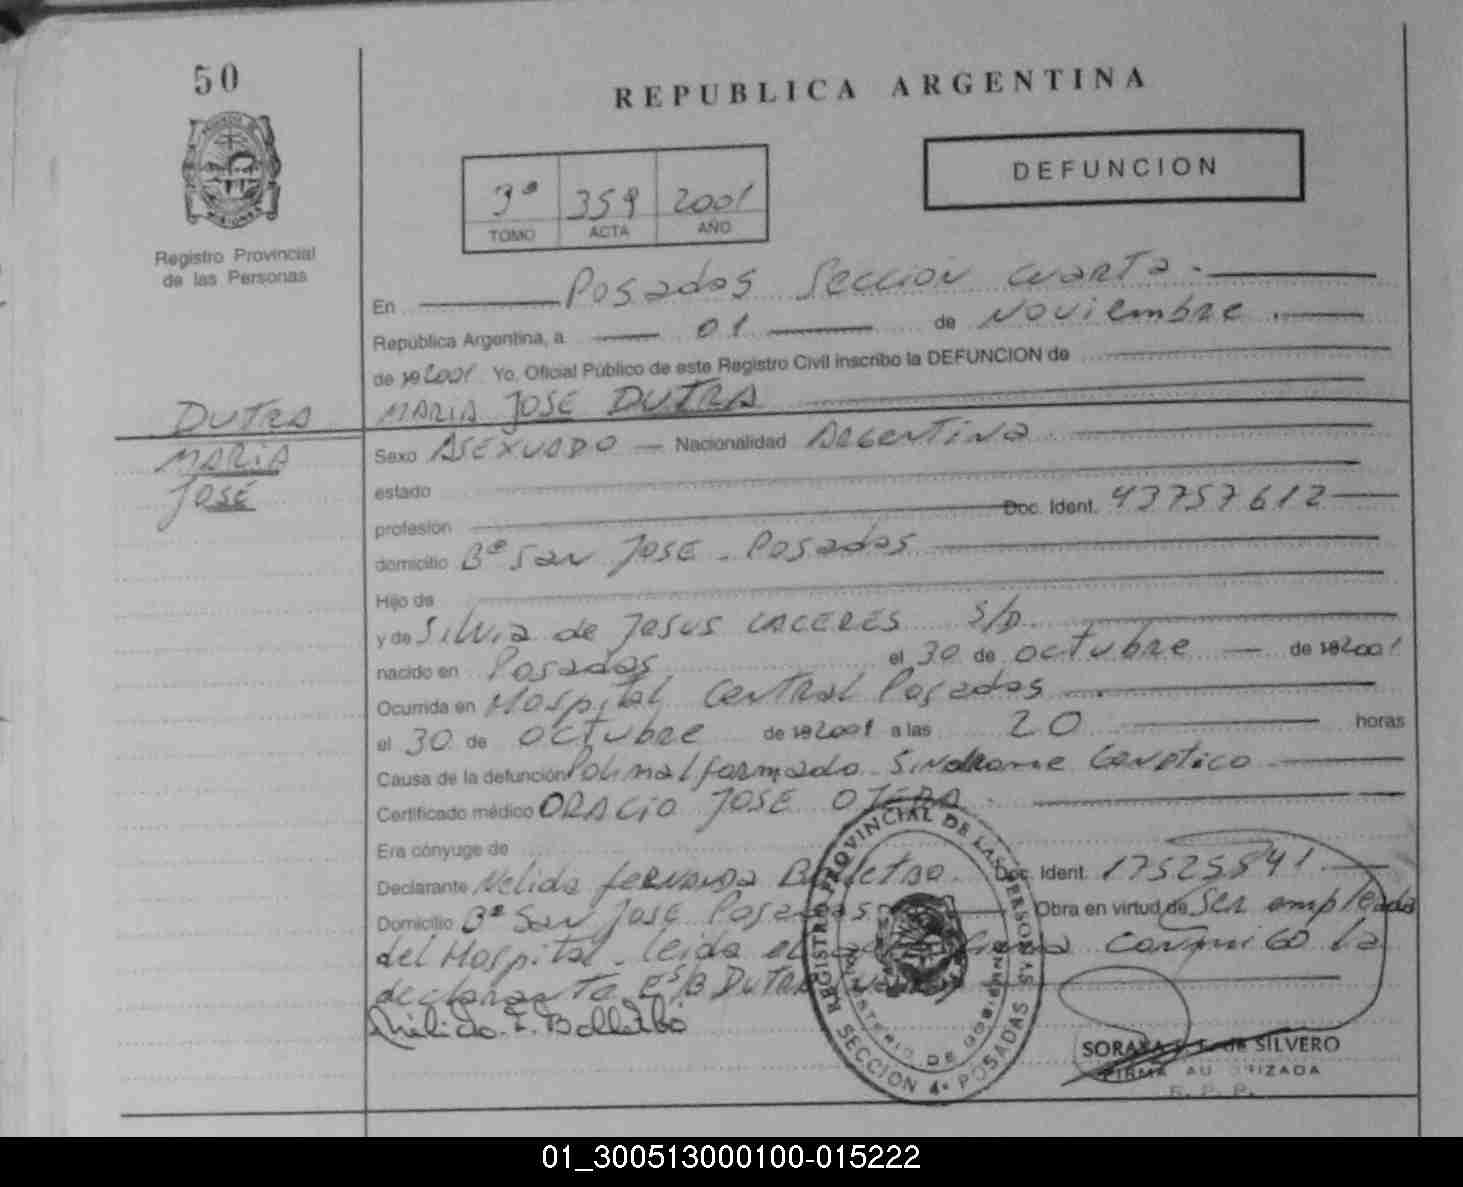 50
REPUBLICA ARGENTINA
DEFUNCION
3ª 359 2001
TOMO ACTA AÑO
Registro Provincial
de las Personas
En Posadas Sección Cuarta.
República Argentina, a 01 de Noviembre.
de 192001 Yo, Oficial Público de este Registro Civil inscribo la DEFUNCION de
MARIA JOSE DUTRA
DUTRA
MARIA
JOSÉ
Sexo ASEXUADO Nacionalidad Argentina
estado
profesión Doc. Ident. 43757612
domicilio Bº San José - Posadas
Hijo de
y de Silvia de Jesus CACERES S/D.
nacido en Posadas el 30 de octubre de 192001
Ocurrida en Hospital Central Posadas
el 30 de octubre de 192001 a las 20 horas
Causa de la defunción Polimalformado Sindrome Genetico
Certificado médico ORACIO JOSE OJEDA.
Era cónyuge de
Declarante Nelida Fernanda Doc. Ident. 17525541
Domicilio Bº San José Posadas Obra en virtud de Ser empleada
del Hospital. leida el firma conmigo la
declarante E/B DUTRA
Nelida F.
REGISTRO PROVINCIAL DE LAS PERSONAS
MINISTERIO DE GOBIERNO
SECCION 4ª POSADAS
SORAYA de SILVERO
FIRMA AUTORIZADA
R. P. P.
01_300513000100-015222